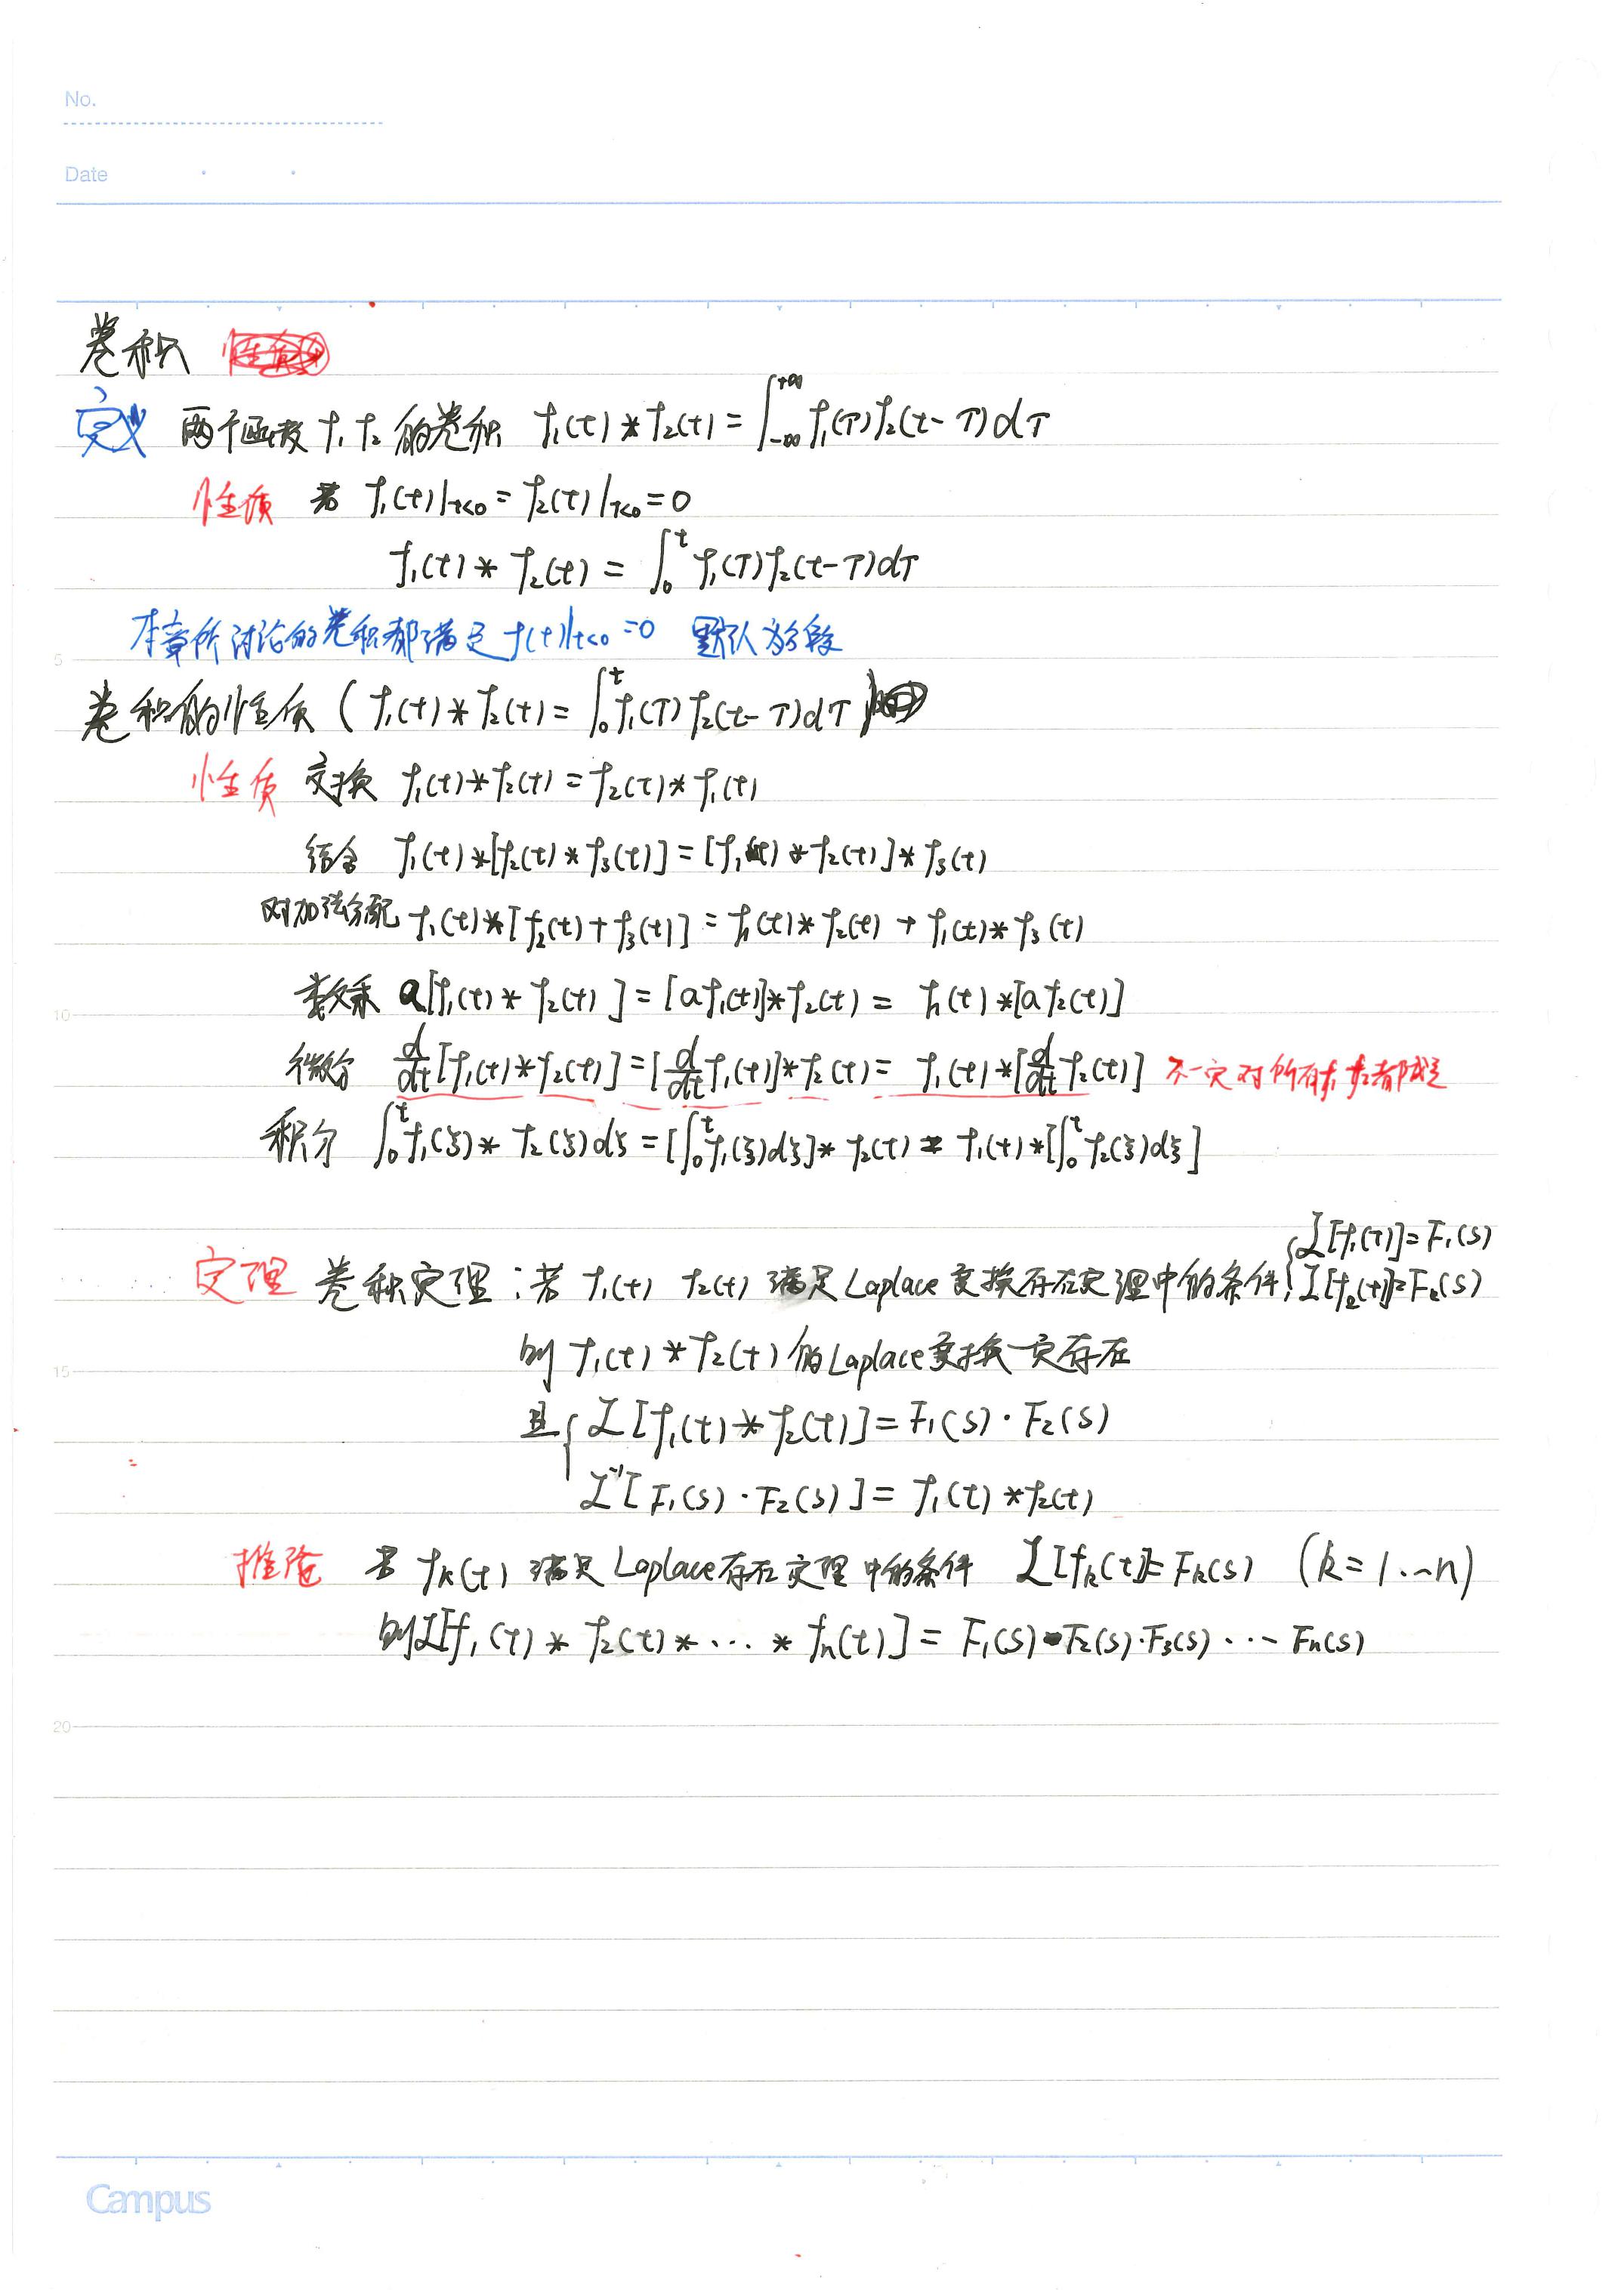 No.
Date
卷积
定义 两个函数 f₁ f₂ 的卷积 f₁(t)*f₂(t)=∫_{-∞}^{+∞} f₁(τ)f₂(t-τ)dτ
性质 若 f₁(t)|t<0 = f₂(t)|t<0 = 0
f₁(t)*f₂(t)=∫₀^t f₁(τ)f₂(t-τ)dτ
本章所讨论的卷积都满足 f(t)|t<0 =0 默认为
卷积的性质 (f₁(t)*f₂(t)=∫₀^t f₁(τ)f₂(t-τ)dτ)
性质 交换 f₁(t)*f₂(t)=f₂(t)*f₁(t)
结合 f₁(t)*[f₂(t)*f₃(t)]=[f₁(t)*f₂(t)]*f₃(t)
对加法分配 f₁(t)*[f₂(t)+f₃(t)]=f₁(t)*f₂(t)+f₁(t)*f₃(t)
数乘 a[f₁(t)*f₂(t)]=[af₁(t)]*f₂(t)=f₁(t)*[af₂(t)]
微分 d/dt[f₁(t)*f₂(t)]=[d/dt f₁(t)]*f₂(t)=f₁(t)*[d/dt f₂(t)] 不一定对所有f₁ f₂都成立
积分 ∫₀^t f₁(ξ)*f₂(ξ)dξ=[∫₀^t f₁(ξ)dξ]*f₂(t)=f₁(t)*[∫₀^t f₂(ξ)dξ]
定理 卷积定理:若 f₁(t) f₂(t) 满足Laplace变换存在定理中的条件 { ℒ[f₁(t)]=F₁(s)
ℒ[f₂(t)]=F₂(s)
则 f₁(t)*f₂(t) 的Laplace变换一定存在
且 { ℒ[f₁(t)*f₂(t)]=F₁(s)·F₂(s)
ℒ⁻¹[F₁(s)·F₂(s)]=f₁(t)*f₂(t)
推论 若 fₖ(t) 满足Laplace存在定理中的条件 ℒ[fₖ(t)]=Fₖ(s) (k=1…n)
则ℒ[f₁(t)*f₂(t)*…*fₙ(t)]=F₁(s)·F₂(s)·F₃(s)…Fₙ(s)
5
10
15
20
Campus